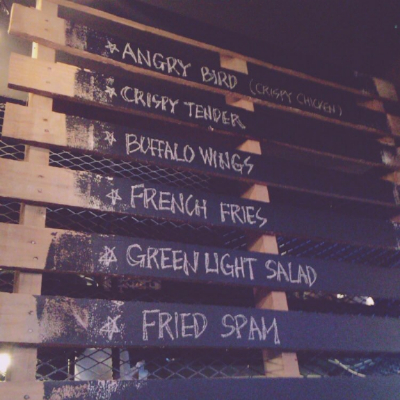 ☆ ANGRY BIRD (CRISPY CHICKEN)
☆ CRISPY TENDER
☆ BUFFALO WINGS
☆ FRENCH FRIES
☆ GREEN LIGHT SALAD
☆ FRIED SPAM